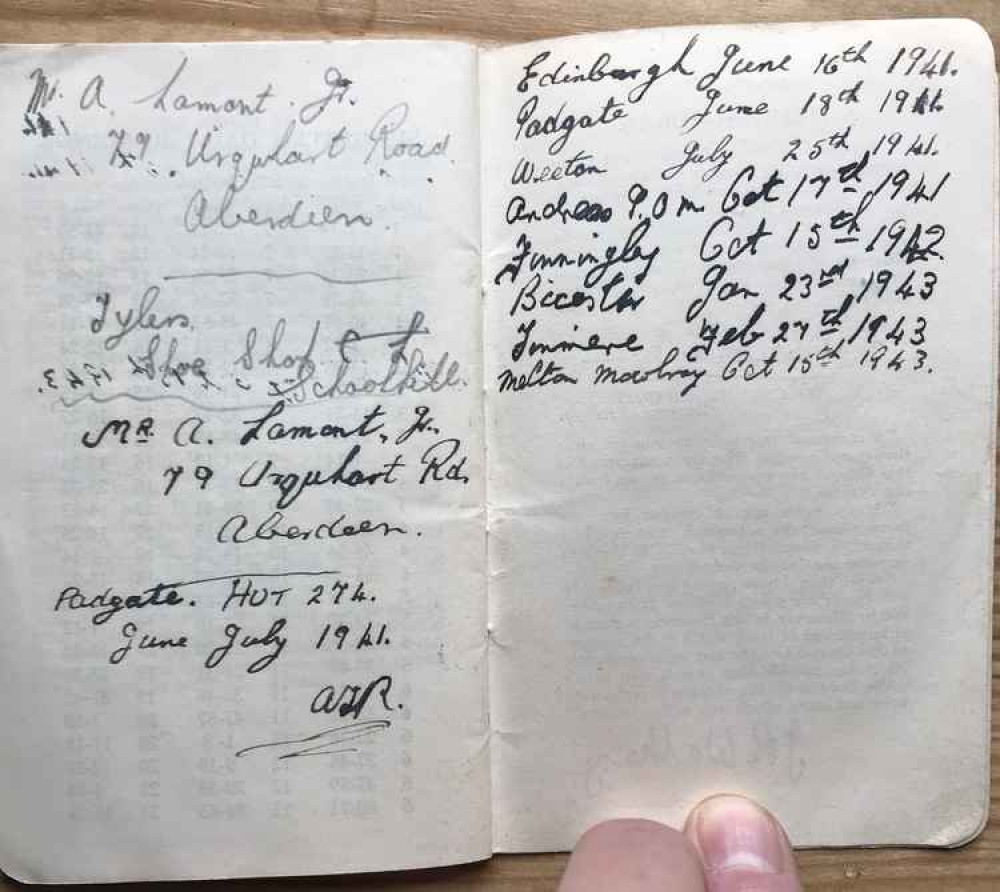 Mr. A. Lamont. Jr.
79. Urquhart Road.
Aberdeen.
Tylers.
Shoe Shop
Schoolhill.
MR. A. Lamont, Jr.
79 Urquhart Rd.
Aberdeen.
Padgate. HUT 274.
June July 1941.
AJR.
Edinburgh June 16th 1941.
Padgate June 18th 1941.
Weeton July 25th 1941.
Andreas I.O.M. Oct 17th 1941
Finningley Oct 15th 1942.
Bicester Jan 23rd 1943
Finmere Feb 27th 1943
Melton Mowbray Oct 15th 1943.